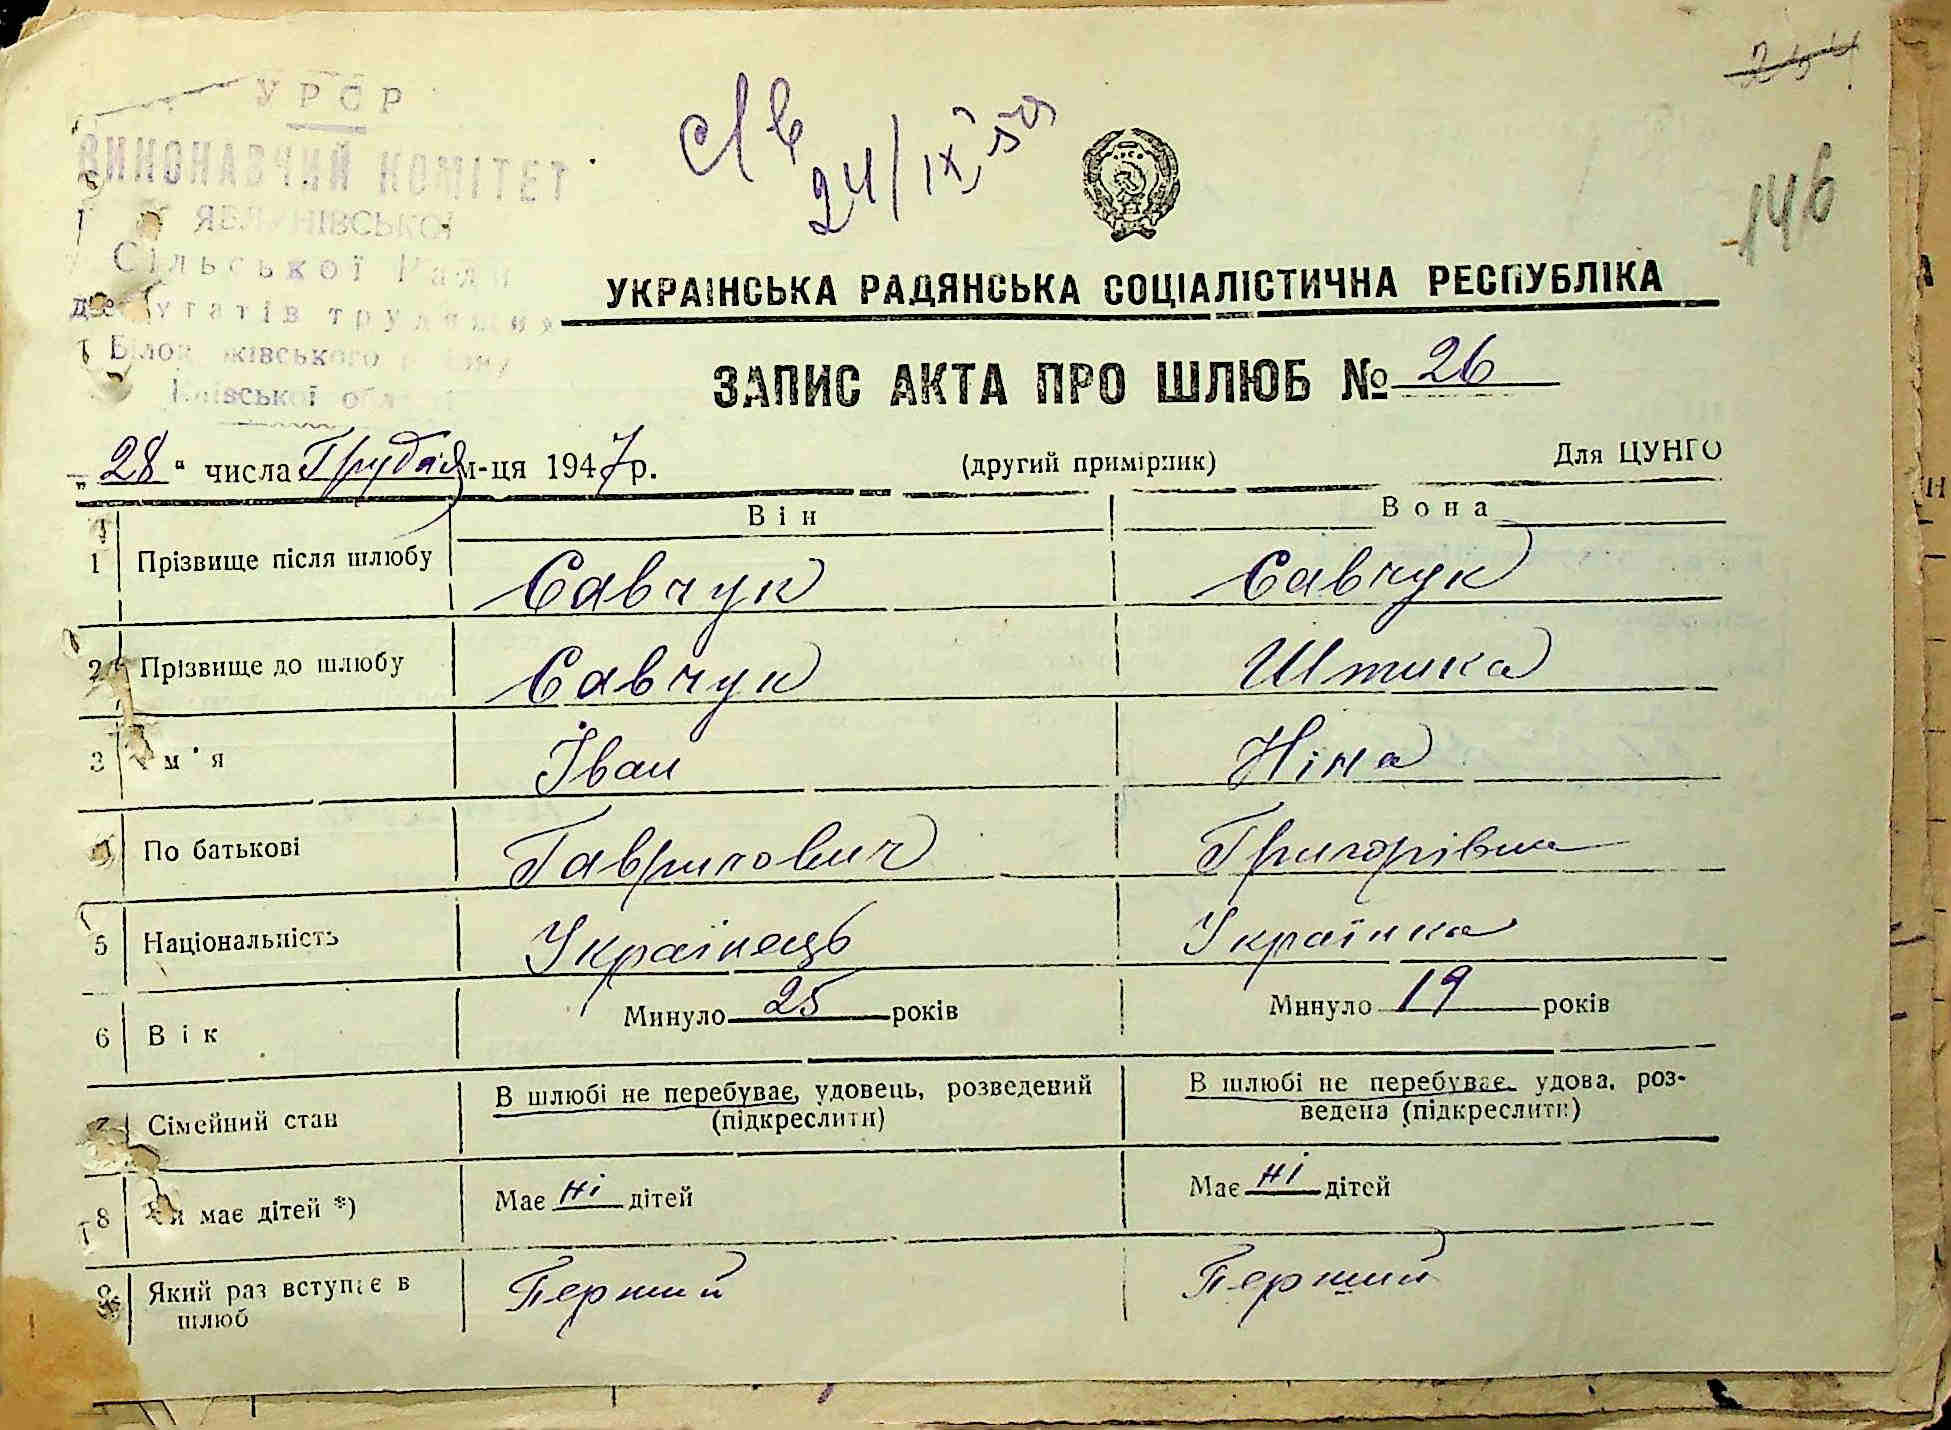 УРСР
ВИКОНАВЧИЙ КОМІТЕТ
ЯБЛУНІВСЬКОЇ
Сільської Ради
депутатів трудящих
Київської
24/IX
254
146
УКРАЇНСЬКА РАДЯНСЬКА СОЦІАЛІСТИЧНА РЕСПУБЛІКА
ЗАПИС АКТА ПРО ШЛЮБ № 26
„28“ числа Грудня м-ця 1947 р.
(другий примірник)
Для ЦУНГО
Він
Вона
1 Прізвище після шлюбу Савчук Савчук
2 Прізвище до шлюбу Савчук Штика
3 м'я Іван Ніна
По батькові Гаврилович Григорівна
5 Національність Українець Українка
6 Вік Минуло 25 років Минуло 19 років
7 Сімейний стан В шлюбі не перебуває, удовець, розведений (підкреслити) В шлюбі не перебуває, удова, роз-
ведена (підкреслити)
8 Чи має дітей *) Має ні дітей Має ні дітей
9 Який раз вступає в Перший Перший
шлюб